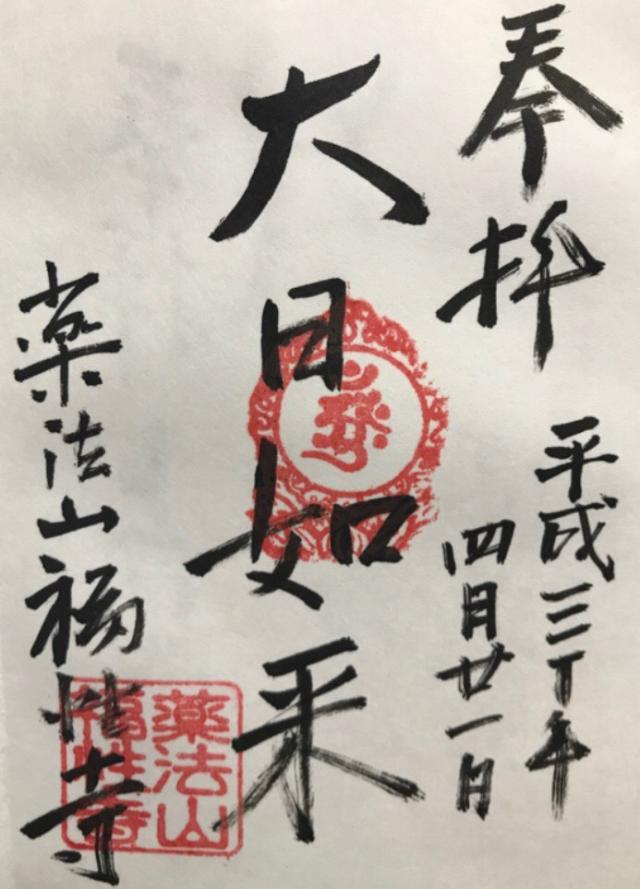 奉拝
平成三十年
四月廿一日
大日如来
薬法山福性寺
薬法山
福性寺